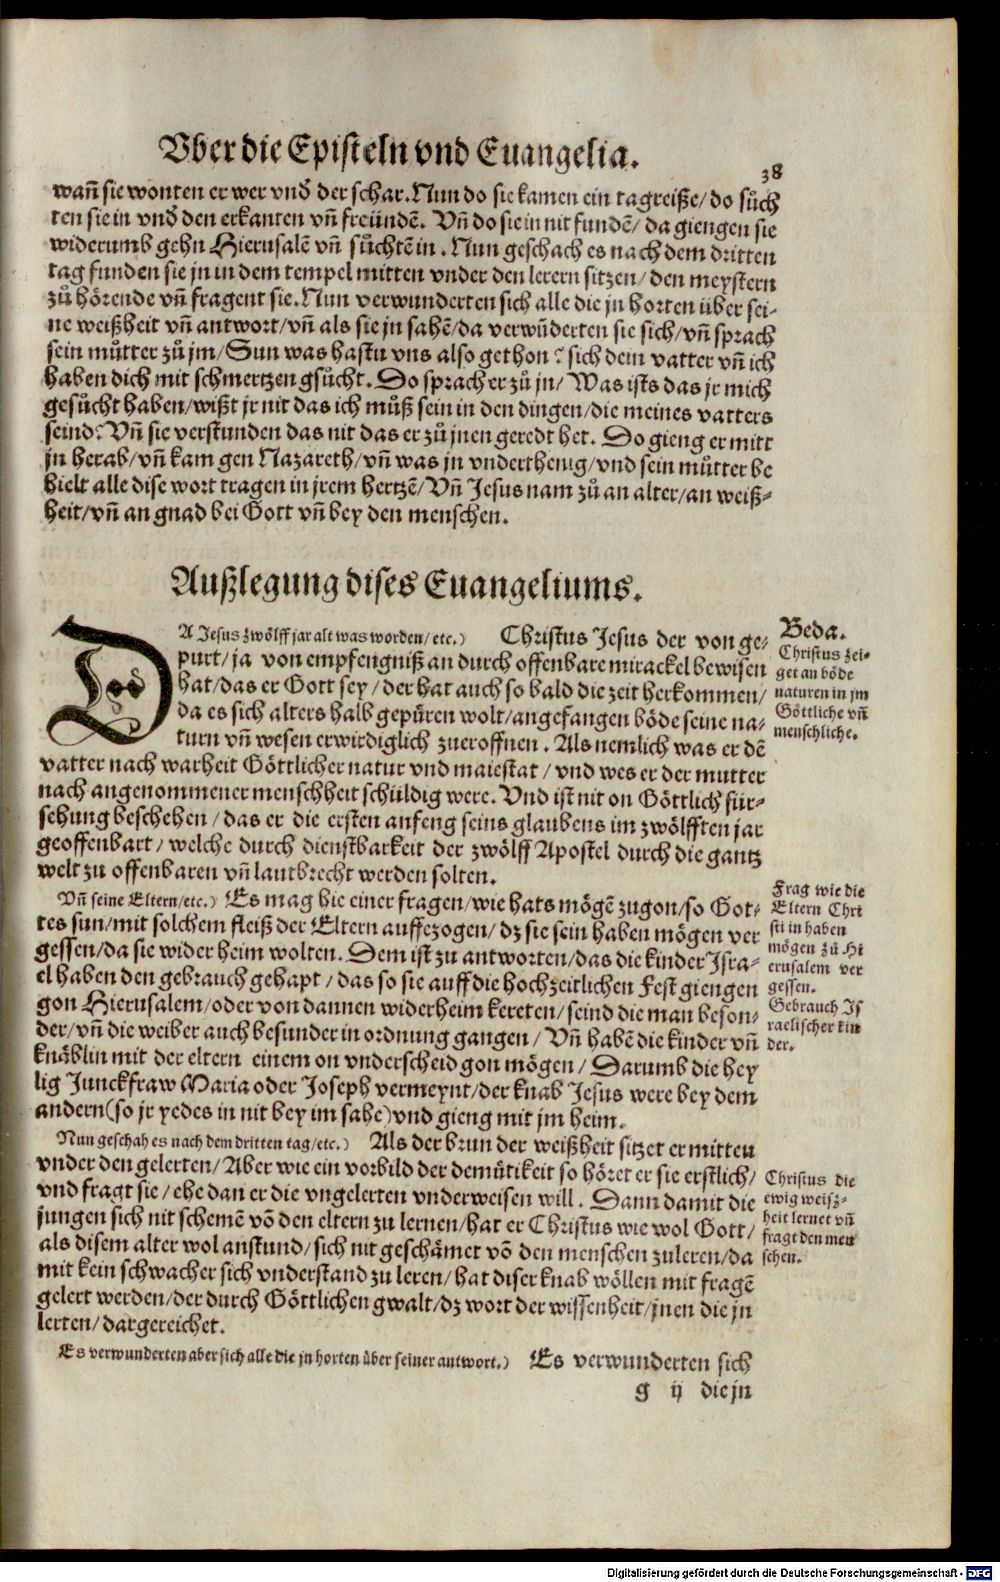 Vber die Episteln vnd Euangelia.
38
wañ sie wonten er wer vnd̕ der schar. Nun do sie kamen ein tagreiße/ do sůch
ten sie in vnd̕ den erkanten vñ freündẽ. Vñ do sie in nit fundẽ/ da giengen sie
widerumb gehn Hierusalẽ vñ sůchtẽ in. Nun geschach es nach dem dritten
tag funden sie jn in dem tempel mitten vnder den lerern sitzen/ den meystern
zů hörende vñ fragent sie. Nun verwunderten sich alle die jn horten über sei-
ne weißheit vñ antwort/ vñ als sie jn sahẽ/ da verwũderten sie sich/ vñ sprach
sein můtter zů jm/ Sun was hastu vns also gethon? sich dein vatter vñ ich
haben dich mit schmertzen gsůcht. Do sprach er zů jn/ Was ists das jr mich
gesůcht haben/ wißt jr nit das ich můß sein in den dingen/ die meines vatters
seind? Vñ sie verstunden das nit das er zů jnen geredt het. Do gieng er mitt
jn herab/ vñ kam gen Nazareth/ vñ was jn vnderthenig/ vnd sein můtter be
hielt alle dise wort tragen in jrem hertzẽ/ Vñ Jesus nam zů an alter/ an weiß-
heit/ vñ an gnad bei Gott vñ bey den menschen.
Außlegung dises Euangeliums.
DA Jesus zwölff jar alt was worden/ etc.) Christus Jesus der von ge-
purt/ ja von empfengniß an durch offenbare mirackel bewisen
hat/ das er Gott sey/ der hat auch so bald die zeit herkommen/
da es sich alters halb gepüren wolt/ angefangen böde seine na-
turn vñ wesen erwirdiglich zueroffnen. Als nemlich was er dẽ
vatter nach warheit Göttlicher natur vnd maiestat/ vnd wes er der mutter
nach angenommener menschheit schüldig were. Vnd ist nit on Göttlich für-
sehung beschehen/ das er die ersten anfeng seins glaubens im zwölfften jar
geoffenbart/ welche durch dienstbarkeit der zwölff Apostel durch die gantz
welt zu offenbaren vñ lautbrecht werden solten.
Beda.
Christus zei-
get an böde
naturen in jm
Göttliche vñ
menschliche.
Vñ seine Eltern/ etc.) Es mag hie einer fragen/ wie hats mögẽ zugon/ so Got-
tes sun/ mit solchem fleiß der Eltern auffezogen/ dz sie sein haben mögen ver
gessen/ da sie wider heim wolten. Dem ist zu antworten/ das die kinder Isra-
el haben den gebrauch gehapt/ das so sie auff die hochzeitlichen Fest giengen
gon Hierusalem/ oder von dannen widerheim kereten/ seind die man beson-
der/ vñ die weiber auch besunder in ordnung gangen/ Vñ habẽ die kinder vñ
knäblin mit der eltern einem on vnderscheid gon mögen/ Darumb die hey
lig Junckfraw Maria oder Joseph vermeynt/ der knab Jesus were bey dem
andern (so jr yedes in nit bey im sahe) vnd gieng mit jm heim.
Frag wie die
Eltern Chri
sti in haben
mögen zů Hi
erusalem ver
gessen.
Gebrauch Is
raelischer kin
der.
Nun geschah es nach dem dritten tag/ etc.) Als der brun der weißheit sitzet er mitten
vnder den gelerten/ Aber wie ein vorbild der demütikeit so höret er sie erstlich/
vnd fragt sie/ ehe dan er die vngelerten vnderweisen will. Dann damit die
jungen sich nit schemẽ võ den eltern zu lernen/ hat er Christus wie wol Gott/
als disem alter wol anstund/ sich nit geschämet võ den menschen zuleren/ da
mit kein schwacher sich vnderstand zu leren/ hat diser knab wöllen mit fragẽ
gelert werden/ der durch Göttlichen gwalt/ dz wort der wissenheit/ jnen die jn
lerten/ dargereichet.
Christus die
ewig weisz-
heit lernet vñ
fragt den men
schen.
Es verwunderten aber sich alle die jn horten über seiner antwort.) Es verwunderten sich
g ij die jn
Digitalisierung gefördert durch die Deutsche Forschungsgemeinschaft - DFG